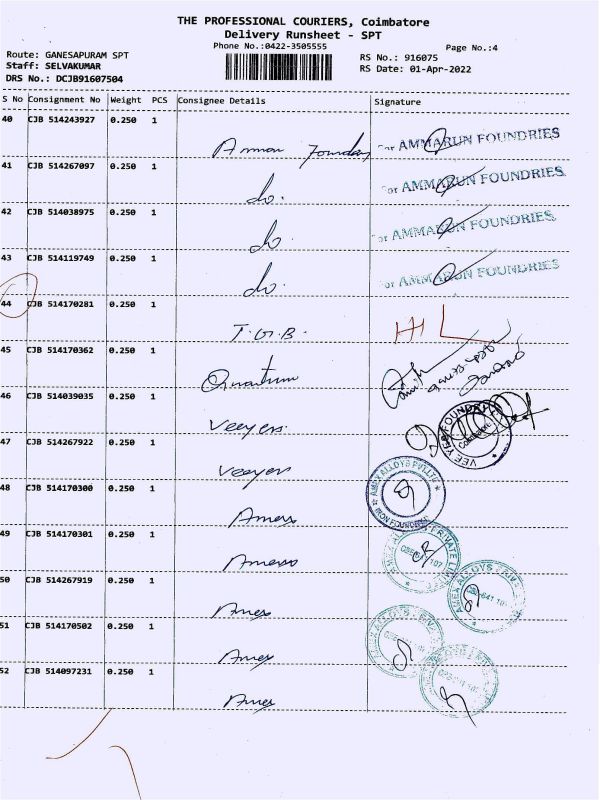 THE PROFESSIONAL COURIERS, Coimbatore
Delivery Runsheet - SPT
Phone No.:0422-3505555
Page No.:4
Route: GANESAPURAM SPT
RS No.: 916075
Staff: SELVAKUMAR
RS Date: 01-Apr-2022
DRS No.: DCJB91607504
S No Consignment No Weight PCS Consignee Details Signature
40 CJB 514243927 0.250 1
Foundry or AMMARUN FOUNDRIES
41 CJB 514267097 0.250 1
do. or AMMARUN FOUNDRIES
42 CJB 514038975 0.250 1
do. or AMMARUN FOUNDRIES
43 CJB 514119749 0.250 1
do. or AMMARUN FOUNDRIES
44 CJB 514170281 0.250 1
T.G.B.
45 CJB 514170362 0.250 1
Quantum
46 CJB 514039035 0.250 1
Veeyes.
VEE YES FOUNDRY
COIMBATORE
47 CJB 514267922 0.250 1
Veeyes
AMEX ALLOYS PVT LTD
48 CJB 514170300 0.250 1
Amex
49 CJB 514170301 0.250 1
Amex
50 CJB 514267919 0.250 1
Amex
AMEX ALLOYS PRIVATE
51 CJB 514170502 0.250 1
Amex
AMEX ALLOYS
52 CJB 514097231 0.250 1
Amex